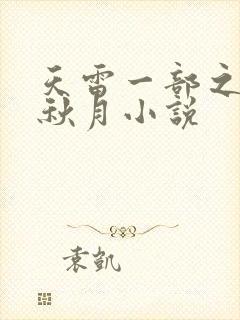 天雷一部之
秋月小説
袁凱